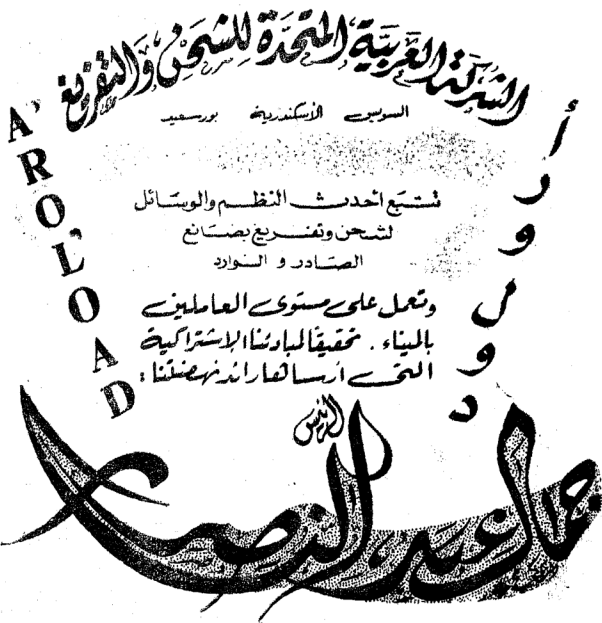 الشركة العربية المتحدة للشحن والتفريغ
السويس الأسكندرية بورسعيد
A'ROL'OAD
أرولود
تتبع أحدث النظم والوسائل
لشحن وتفريغ بضائع
الصادر و الوارد
وتعمل على مستوى العاملين
بالميناء . تحقيقًا لمبادئنا الاشتراكية
التى أرساها رائد نهضتنا :
الرئيس
جمال عبد الناصر